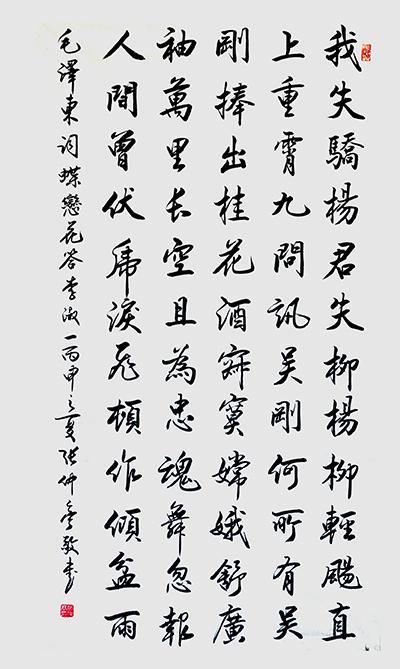 我失驕楊君失柳楊柳輕颺直
上重霄九問訊吳剛何所有吳
剛捧出桂花酒寂寞嫦娥舒廣
袖萬里长空且為忠魂舞忽報
人間曾伏虎淚飛頓作傾盆雨
毛澤東词蝶戀花答李淑一丙申之夏张仲敬書